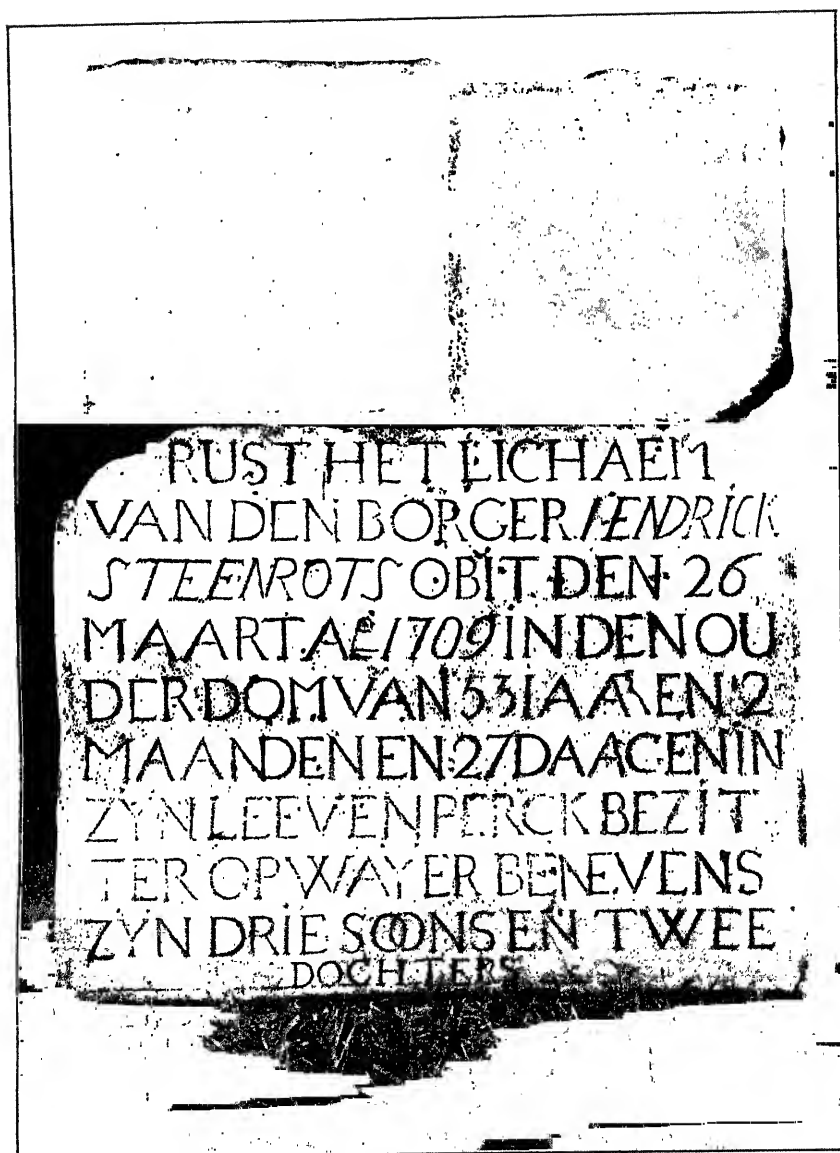 RUST HET LICHAEM
VAN DEN BORGER HENDRICK
STEENROTS OBIT DEN 26
MAART Aº 1709 IN DEN OU
DERDOM VAN 53 IAAREN 2
MAANDEN EN 27 DAAGEN IN
ZYN LEEVEN PERCK BEZIT
TER OP WAYER BENEVENS
ZYN DRIE SOONS EN TWEE
DOCHTERS